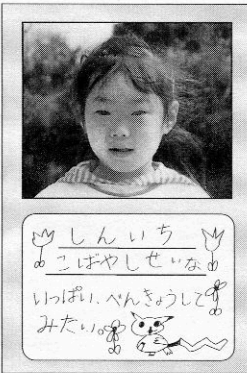 しんいち
こばやしせいな
いっぱい、べんきょうして
みたい。